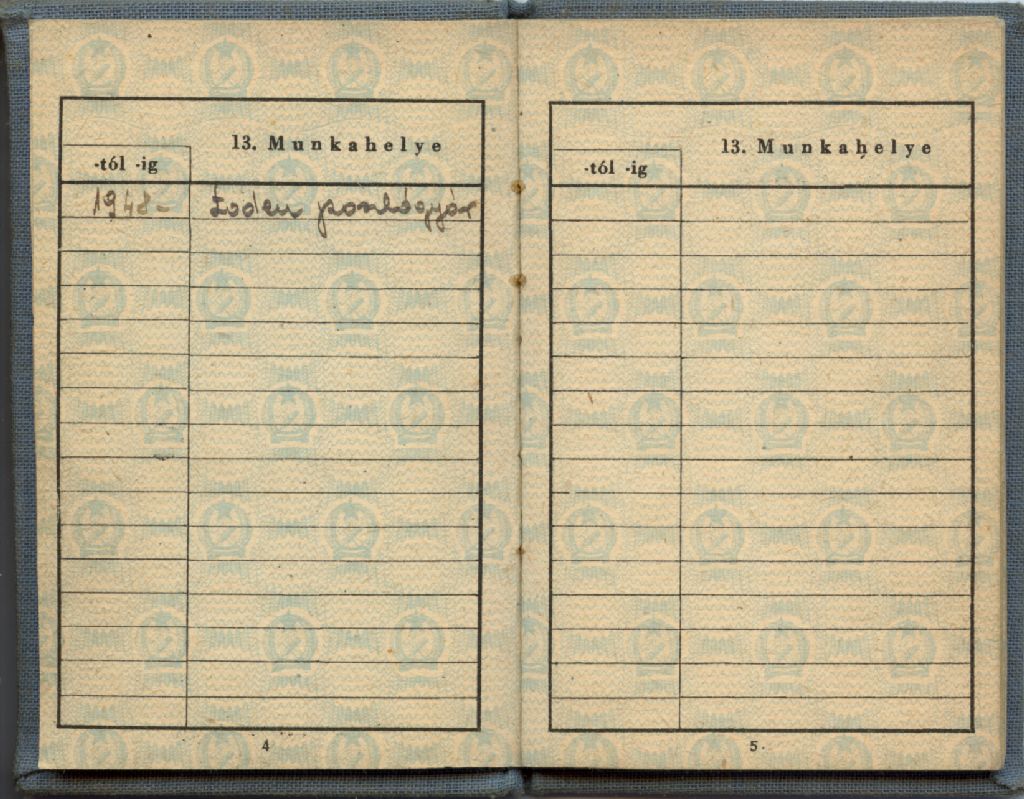 13. Munkahelye
-tól -ig
1948- Loden posztógyár
4
13. Munkahelye
-tól -ig
5.